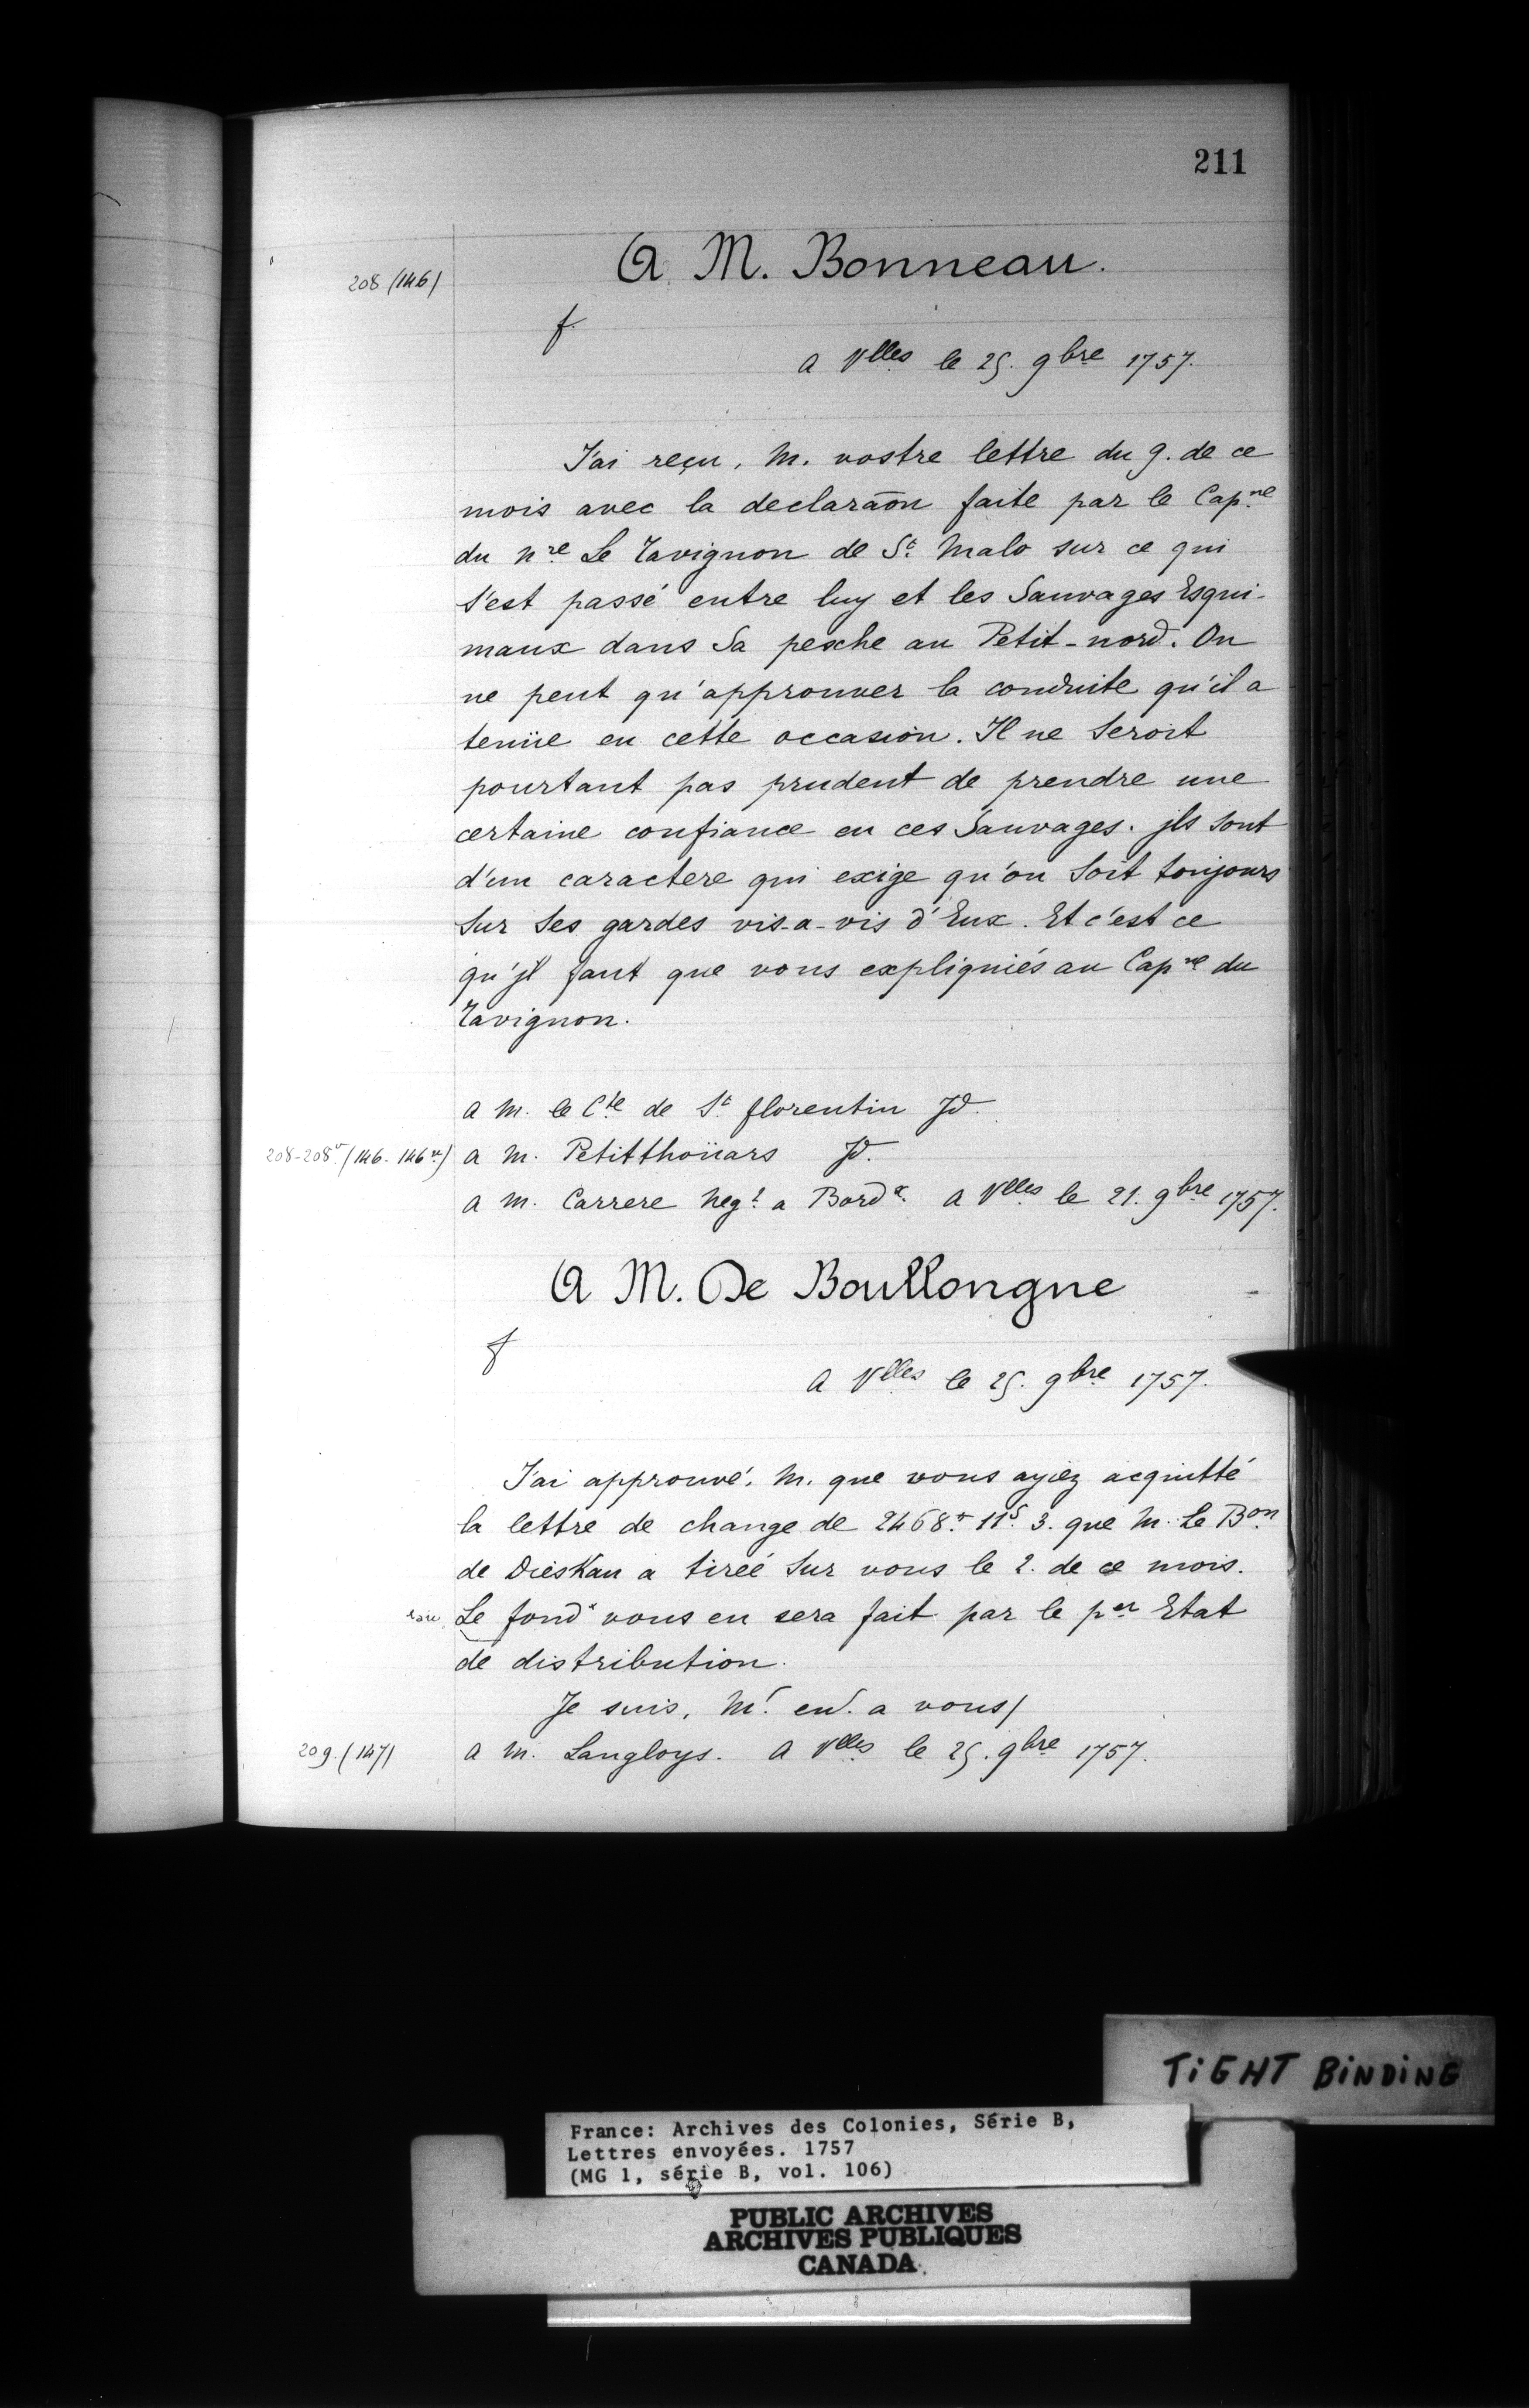 211
208 (146)
A M. Bonneau.
f
a Vlles le 25. 9bre 1757.
J'ai reçu, M. vostre lettre du 9. de ce
mois avec la declaraõn faite par le Capne
du nre Le Tavignon de St. Malo sur ce qui
s'est passé entre luy et les Sauvages Esqui-
maux dans Sa pesche au Petit-nord. On
ne peut qu'approuver la conduite qu'il a
tenüe en cette occasion. Il ne Seroit
pourtant pas prudent de prendre une
certaine confiance en ces Sauvages. jls sont
d'un caractere qui exige qu'on Soit toujours
Sur Ses gardes vis-a-vis d'Eux. Et c'est ce
qu'jl faut que vous expliquiés au Capne du
Tavignon.
a M. le Cte de St florentin Jd.
208-208v (146-146v) a M. Petitthoüars Jd.
a M. Carrere Negt a Bordx. a Vlles le 21. 9bre 1757.
A M. De Boullongne
f
a Vlles le 25. 9bre 1757.
J'ai approuvé, M. que vous ayiez acquitté
la lettre de change de 2468tt 11s 3. que M. Le Bon
de DiesKau a tireé Sur vous le 2. de ce mois.
Le fond* vous en sera fait par le per Etat
de distribution.
Je suis, Mr. en. a vous/
209. (147) a M. Langloys. A Vlles le 25. 9bre 1757.
TiGHT BiNDiNG
France: Archives des Colonies, Série B,
Lettres envoyées. 1757
(MG 1, série B, vol. 106)
PUBLIC ARCHIVES
ARCHIVES PUBLIQUES
CANADA